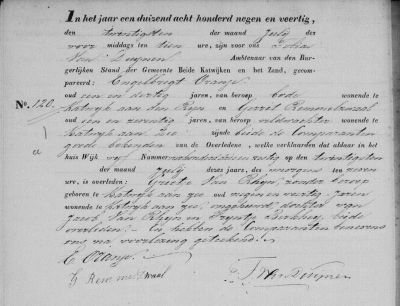 In het jaar een duizend acht honderd negen en veertig,
den twentigsten der maand July des
voor middags ten tien ure, zijn voor ons
Van Duynen Ambtenaar van den Bur-
gerlijken Stand der Gemeente Beide Katwijken en het Zand, gecom-
pareerd: Engelbregt Oranje
oud een en dertig jaren, van beroep bode wonende te
No. 120. Katwyk aan den Ryn en Gerrit Remmenswaal
oud een en zeventig jaren, van beroep veldwachter wonende te
Katwyk aan Zee zijnde beide de Comparanten
goede bekenden van de Overledene, welke verklaarden dat aldaar in het
huis Wijk vyf Nummer op den twentigsten
der maand July dezes jaars, des morgens ten zeven
ure, is overleden: Grietje Van Rhyn, zonder beroep
geboren te Katwyk aan Zee oud negen en veertig jaren
wonende te Katwyk aan Zee, ongehuwd, dochter van
Jacob Van Rhyn en beide
overleden. En hebben de Comparanten benevens
ons na voorlezing geteekend.
E Oranje
G Remmenswaal
T. Van Duijnen